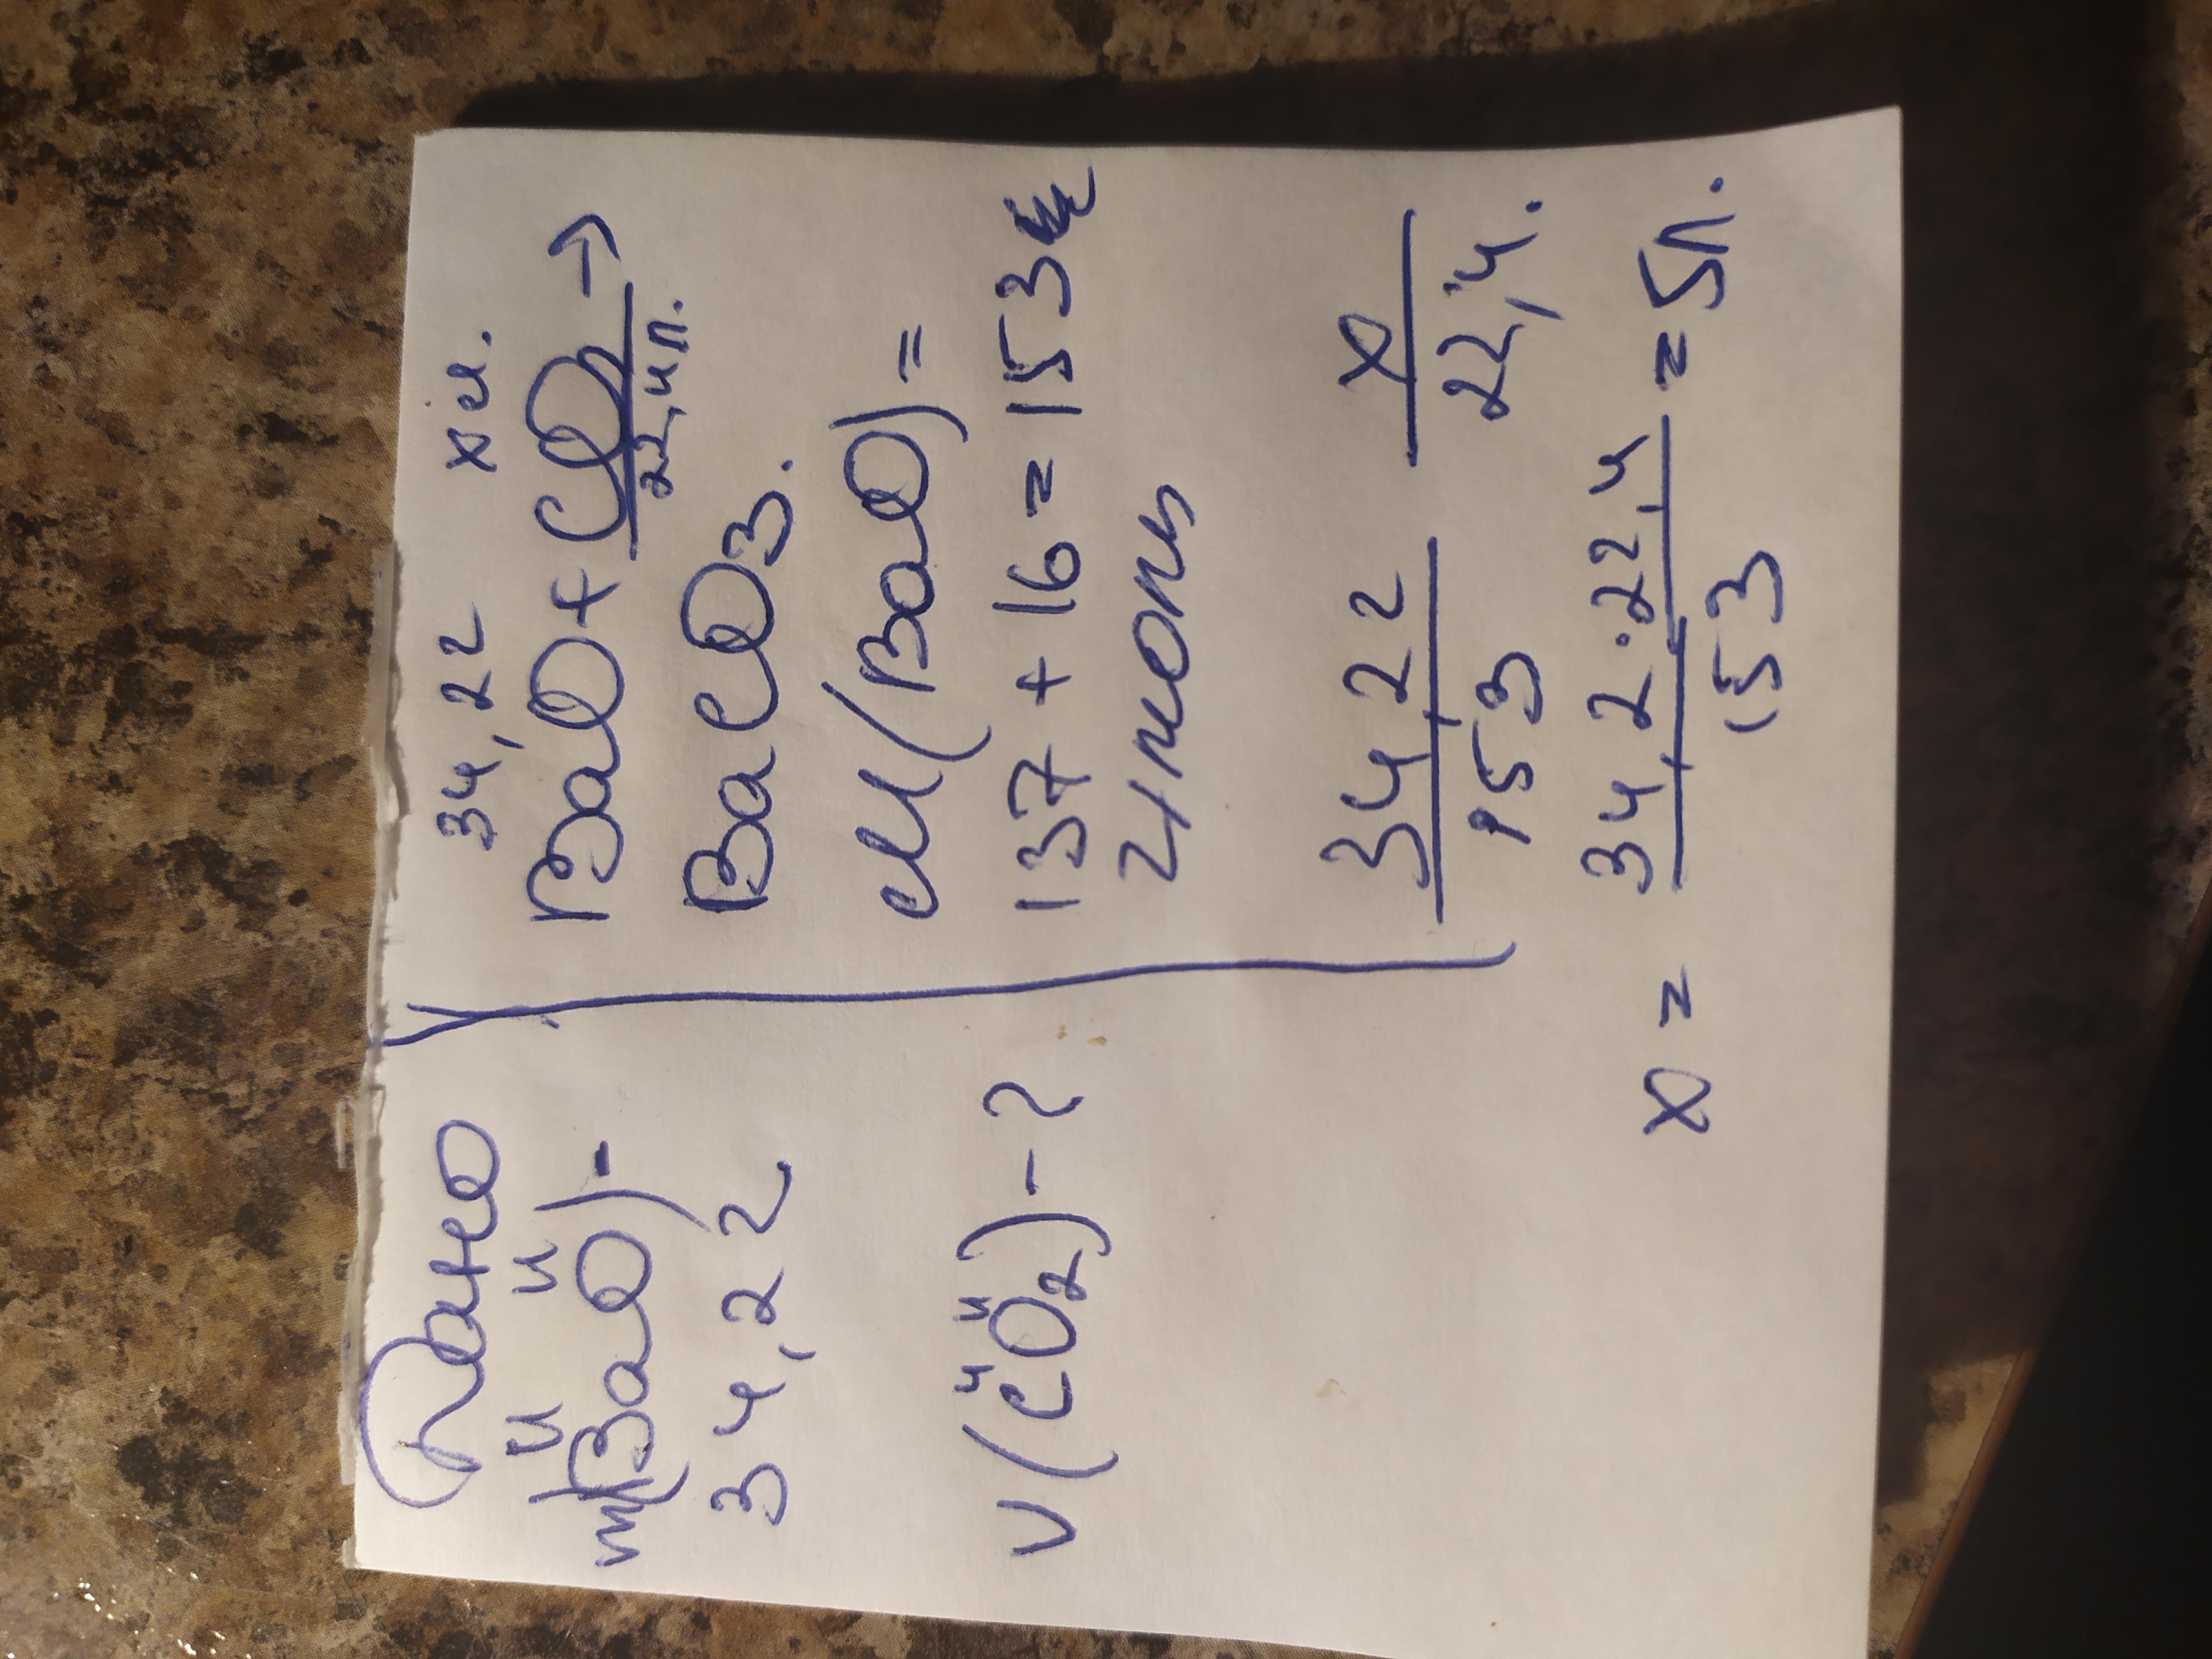 Дано
m(BaO)-
34,2 г
V(CO₂) - ?
34,2 г х л.
BaO + CO₂ →
22,4 л.
BaCO₃.
M(BaO) =
137 + 16 = 153
г/моль
34,2 г х
153 22,4.
x = 34,2·22,4 = 5 л.
153